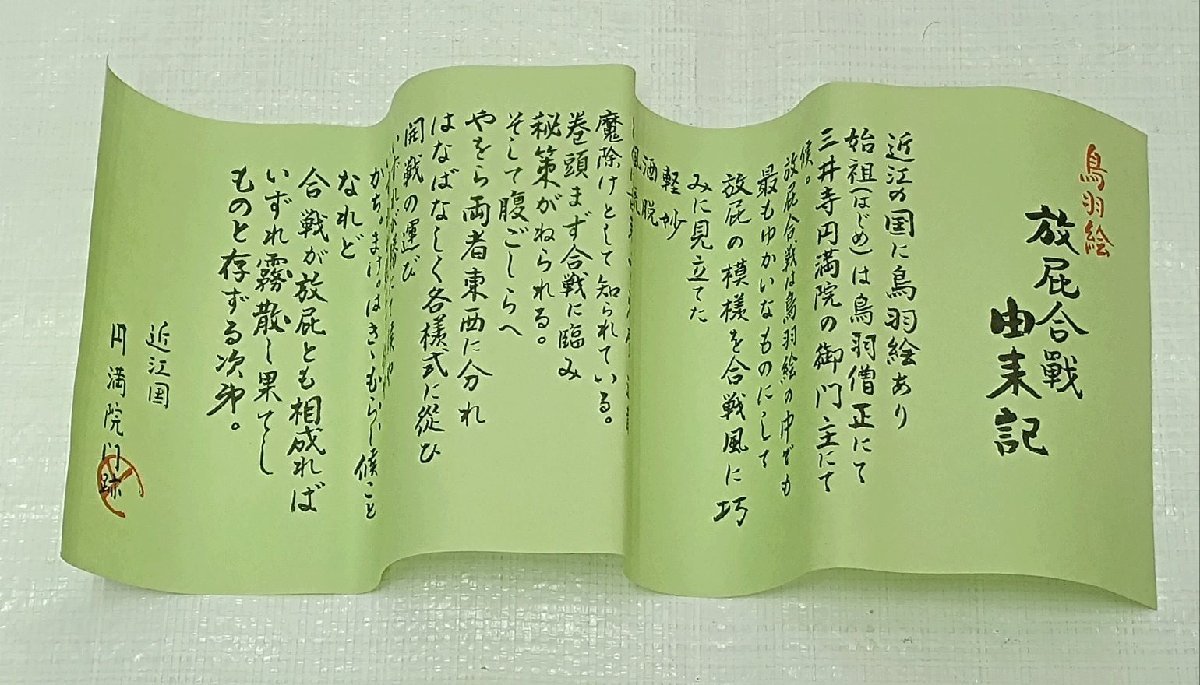 鳥羽絵
放屁合戰
由来記
近江の国に鳥羽絵あり
始祖(はじめ)は鳥羽僧正にて
三井寺円満院の御門主にて
候。
放屁合戦は鳥羽絵の中でも
最もゆかいなものにして
放屁の模様を合戦風に巧
みに見立てた
軽妙
洒脱
魔除けとして知られている。
巻頭まず合戦に臨み
秘策がねられる。
そして腹ごしらへ
やをら両者東西に分れ
はなばなしく各様式に従ひ
開戦の運び
かち。まけ。はきゝもらし候こと
なれど
合戦が放屁とも相成れば
いずれ霧散し果てし
ものと存ずる次第。
近江国
円満院門跡